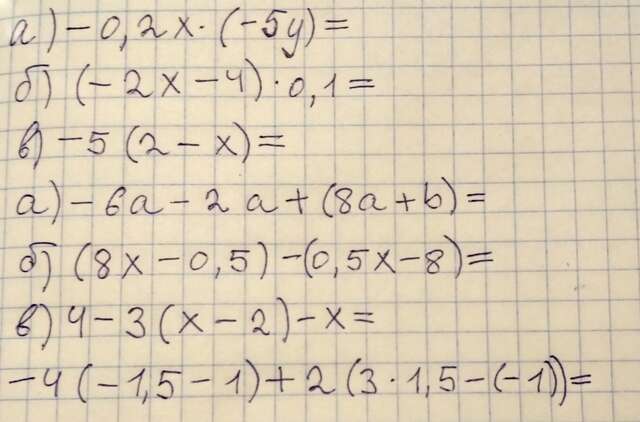 а) - 0,2x · (-5y) =
б) (-2x - 4) · 0,1 =
в) -5 (2 - x) =
а) - 6a - 2a + (8a + b) =
б) (8x - 0,5) - (0,5x - 8) =
в) 4 - 3 (x - 2) - x =
-4 (-1,5 - 1) + 2 (3 · 1,5 - (-1)) =